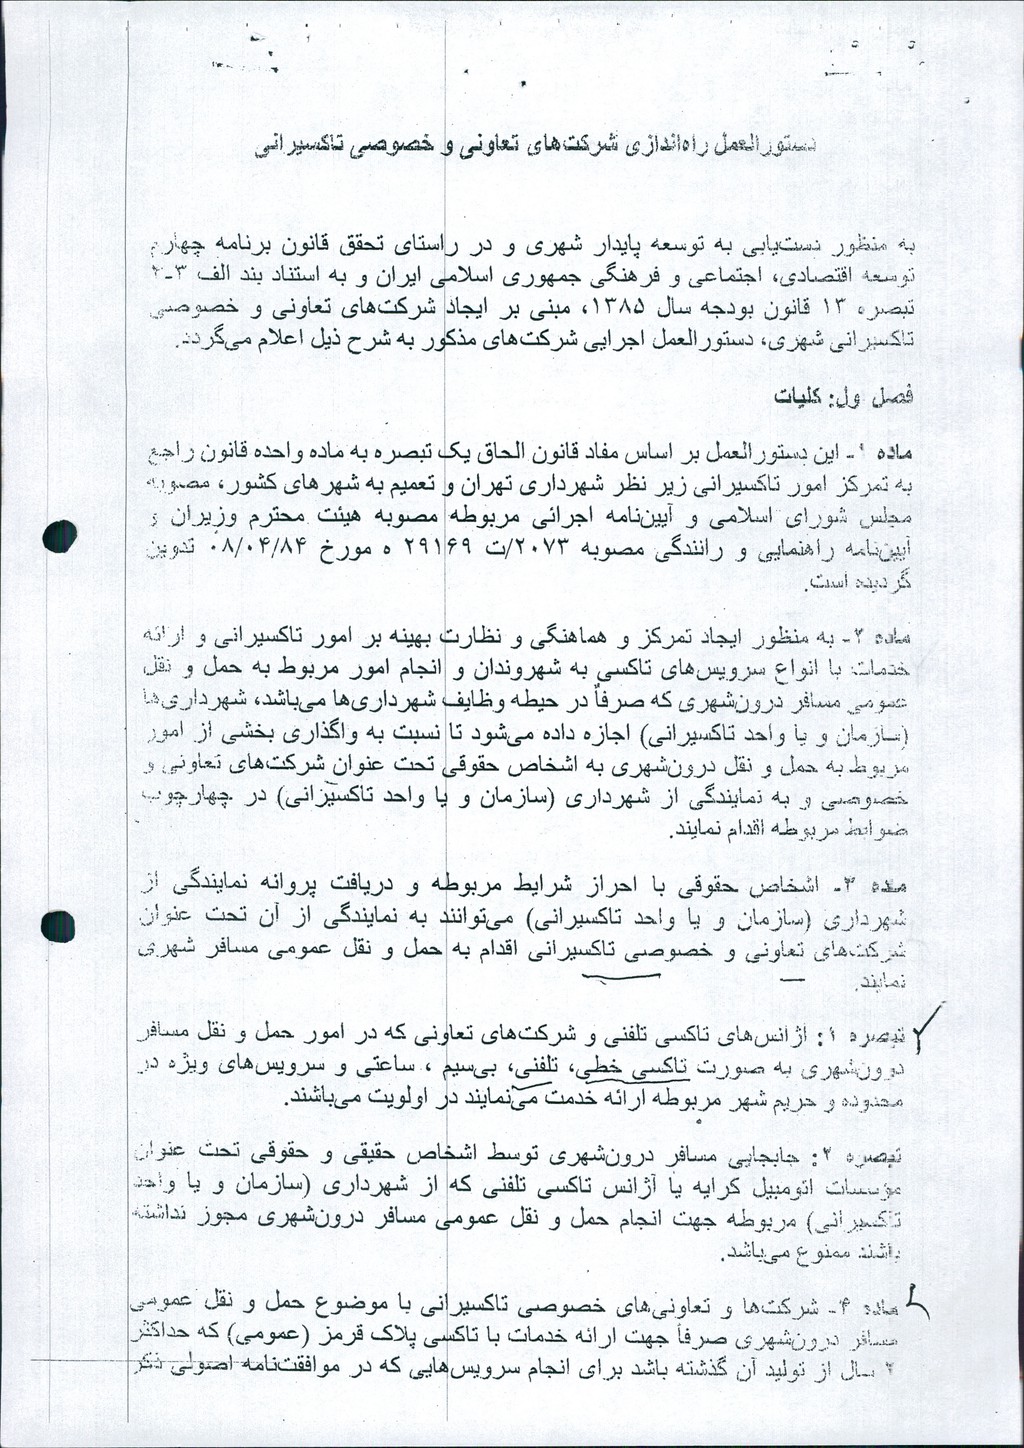 دستورالعمل راه‌اندازی شرکت‌های تعاونی و خصوصی تاکسیرانی
به منظور دست‌یابی به توسعه پایدار شهری و در راستای تحقق قانون برنامه چهارم
توسعه اقتصادی، اجتماعی و فرهنگی جمهوری اسلامی ایران و به استناد بند الف ۳-۲
تبصره ۱۳ قانون بودجه سال ۱۳۸۵، مبنی بر ایجاد شرکت‌های تعاونی و خصوصی
تاکسیرانی شهری، دستورالعمل اجرایی شرکت‌های مذکور به شرح ذیل اعلام می‌گردد.
فصل اول: کلیات
ماده ۱- این دستورالعمل بر اساس مفاد قانون الحاق یک تبصره به ماده واحده قانون راجع
به تمرکز امور تاکسیرانی زیر نظر شهرداری تهران و تعمیم به شهرهای کشور، مصوبه
مجلس شورای اسلامی و آیین‌نامه اجرائی مربوطه مصوبه هیئت محترم وزیران و
آیین‌نامه راهنمایی و رانندگی مصوبه ۲۰۷۳/ت ۲۹۱۶۹ ه مورخ ۰۸/۰۴/۸۴ تدوین
گردیده است.
ماده ۲- به منظور ایجاد تمرکز و هماهنگی و نظارت بهینه بر امور تاکسیرانی و ارائه
خدمات با انواع سرویس‌های تاکسی به شهروندان و انجام امور مربوط به حمل و نقل
عمومی مسافر درون‌شهری که صرفاً در حیطه وظایف شهرداری‌ها می‌باشد، شهرداری‌ها
(سازمان و یا واحد تاکسیرانی) اجازه داده می‌شود تا نسبت به واگذاری بخشی از امور
مربوط به حمل و نقل درون‌شهری به اشخاص حقوقی تحت عنوان شرکت‌های تعاونی و
خصوصی و به نمایندگی از شهرداری (سازمان و یا واحد تاکسیرانی) در چهارچوب
ضوابط مربوطه اقدام نمایند.
ماده ۳- اشخاص حقوقی با احراز شرایط مربوطه و دریافت پروانه نمایندگی از
شهرداری (سازمان و یا واحد تاکسیرانی) می‌توانند به نمایندگی از آن تحت عنوان
شرکت‌های تعاونی و خصوصی تاکسیرانی اقدام به حمل و نقل عمومی مسافر شهری
نمایند.
تبصره ۱: آژانس‌های تاکسی تلفنی و شرکت‌های تعاونی که در امور حمل و نقل مسافر
درون‌شهری به صورت تاکسی خطی، تلفنی، بی‌سیم ، ساعتی و سرویس‌های ویژه در
محدوده و حریم شهر مربوطه ارائه خدمت می‌نمایند در اولویت می‌باشند.
تبصره ۲: جابجایی مسافر درون‌شهری توسط اشخاص حقیقی و حقوقی تحت عنوان
مؤسسات اتومبیل کرایه یا آژانس تاکسی تلفنی که از شهرداری (سازمان و یا واحد
تاکسیرانی) مربوطه جهت انجام حمل و نقل عمومی مسافر درون‌شهری مجوز نداشته
باشند ممنوع می‌باشد.
ماده ۴- شرکت‌ها و تعاونی‌های خصوصی تاکسیرانی با موضوع حمل و نقل عمومی
مسافر درون‌شهری صرفاً جهت ارائه خدمات با تاکسی پلاک قرمز (عمومی) که حداکثر
۲ سال از تولید آن گذشته باشد برای انجام سرویس‌هایی که در موافقت‌نامه اصولی ذکر